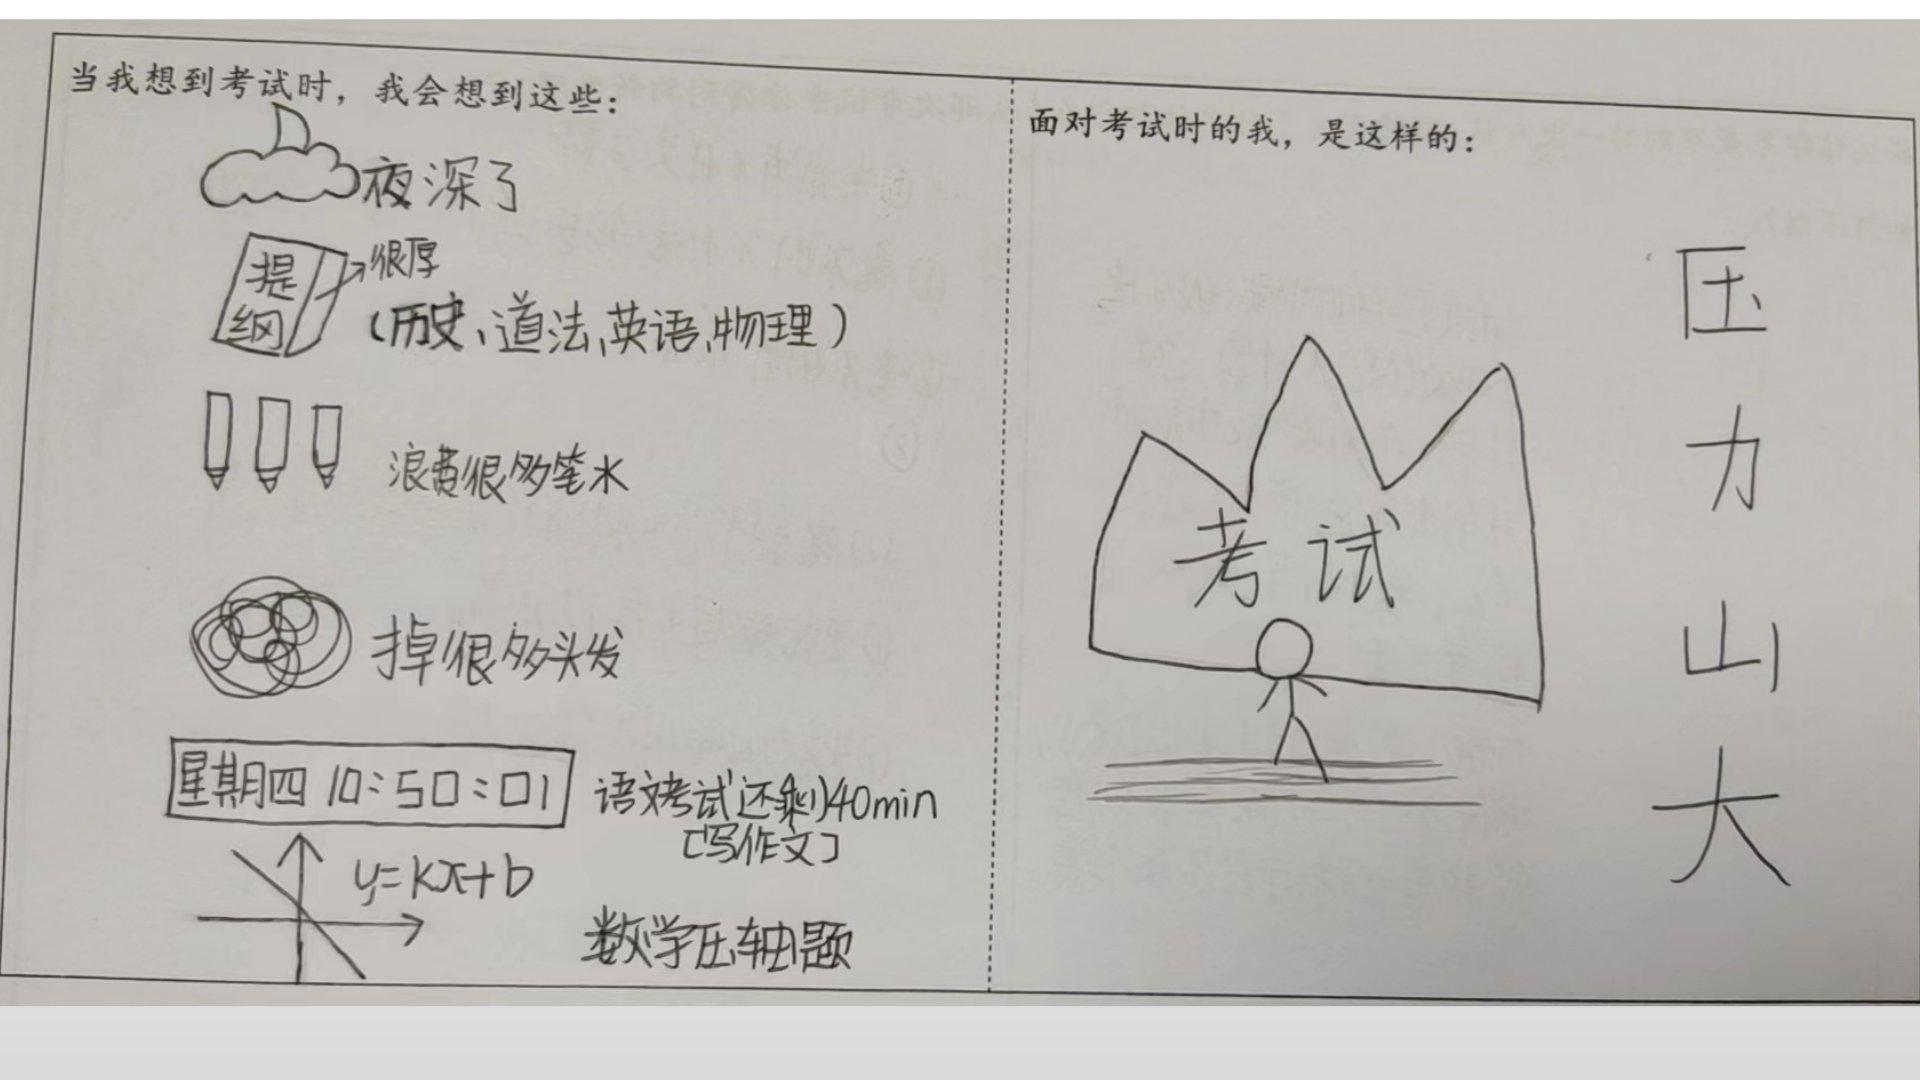 当我想到考试时，我会想到这些：
夜深了
提
纲
很厚
（历史、道法、英语、物理）
浪费很多笔水
掉很多头发
星期四 10:50:01
语文考试还剩40min
[写作文]
y=kx+b
数学压轴题
面对考试时的我，是这样的：
考试
压
力
山
大